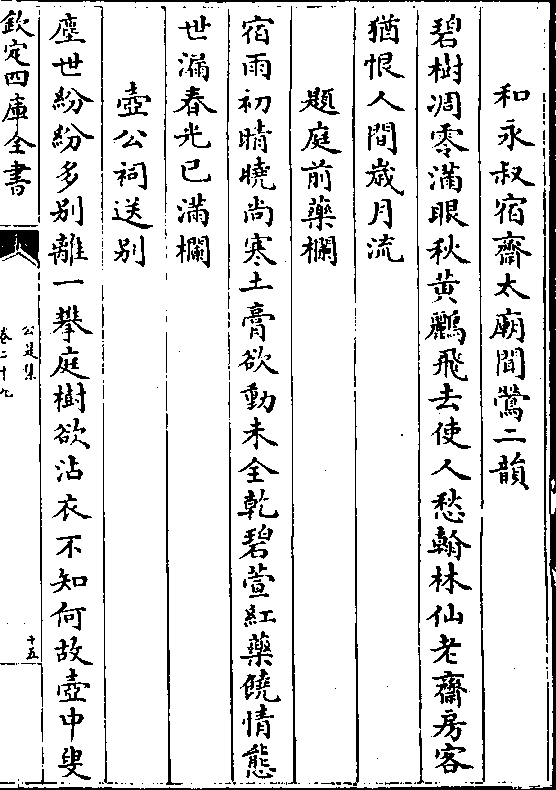 和永叔宿齋太廟聞鶯二韻
碧樹凋零滿眼秋黃鸝飛去使人愁翰林仙老齋房客
猶恨人間歲月流
題庭前藥欄
宿雨初晴曉尚寒土膏欲動未全乾碧萱紅藥饒情態
世漏春光已滿欄
壺公祠送别
塵世紛紛多别離一攀庭樹欲沾衣不知何故壺中叟
欽定四庫全書
公是集
卷二十九
十五